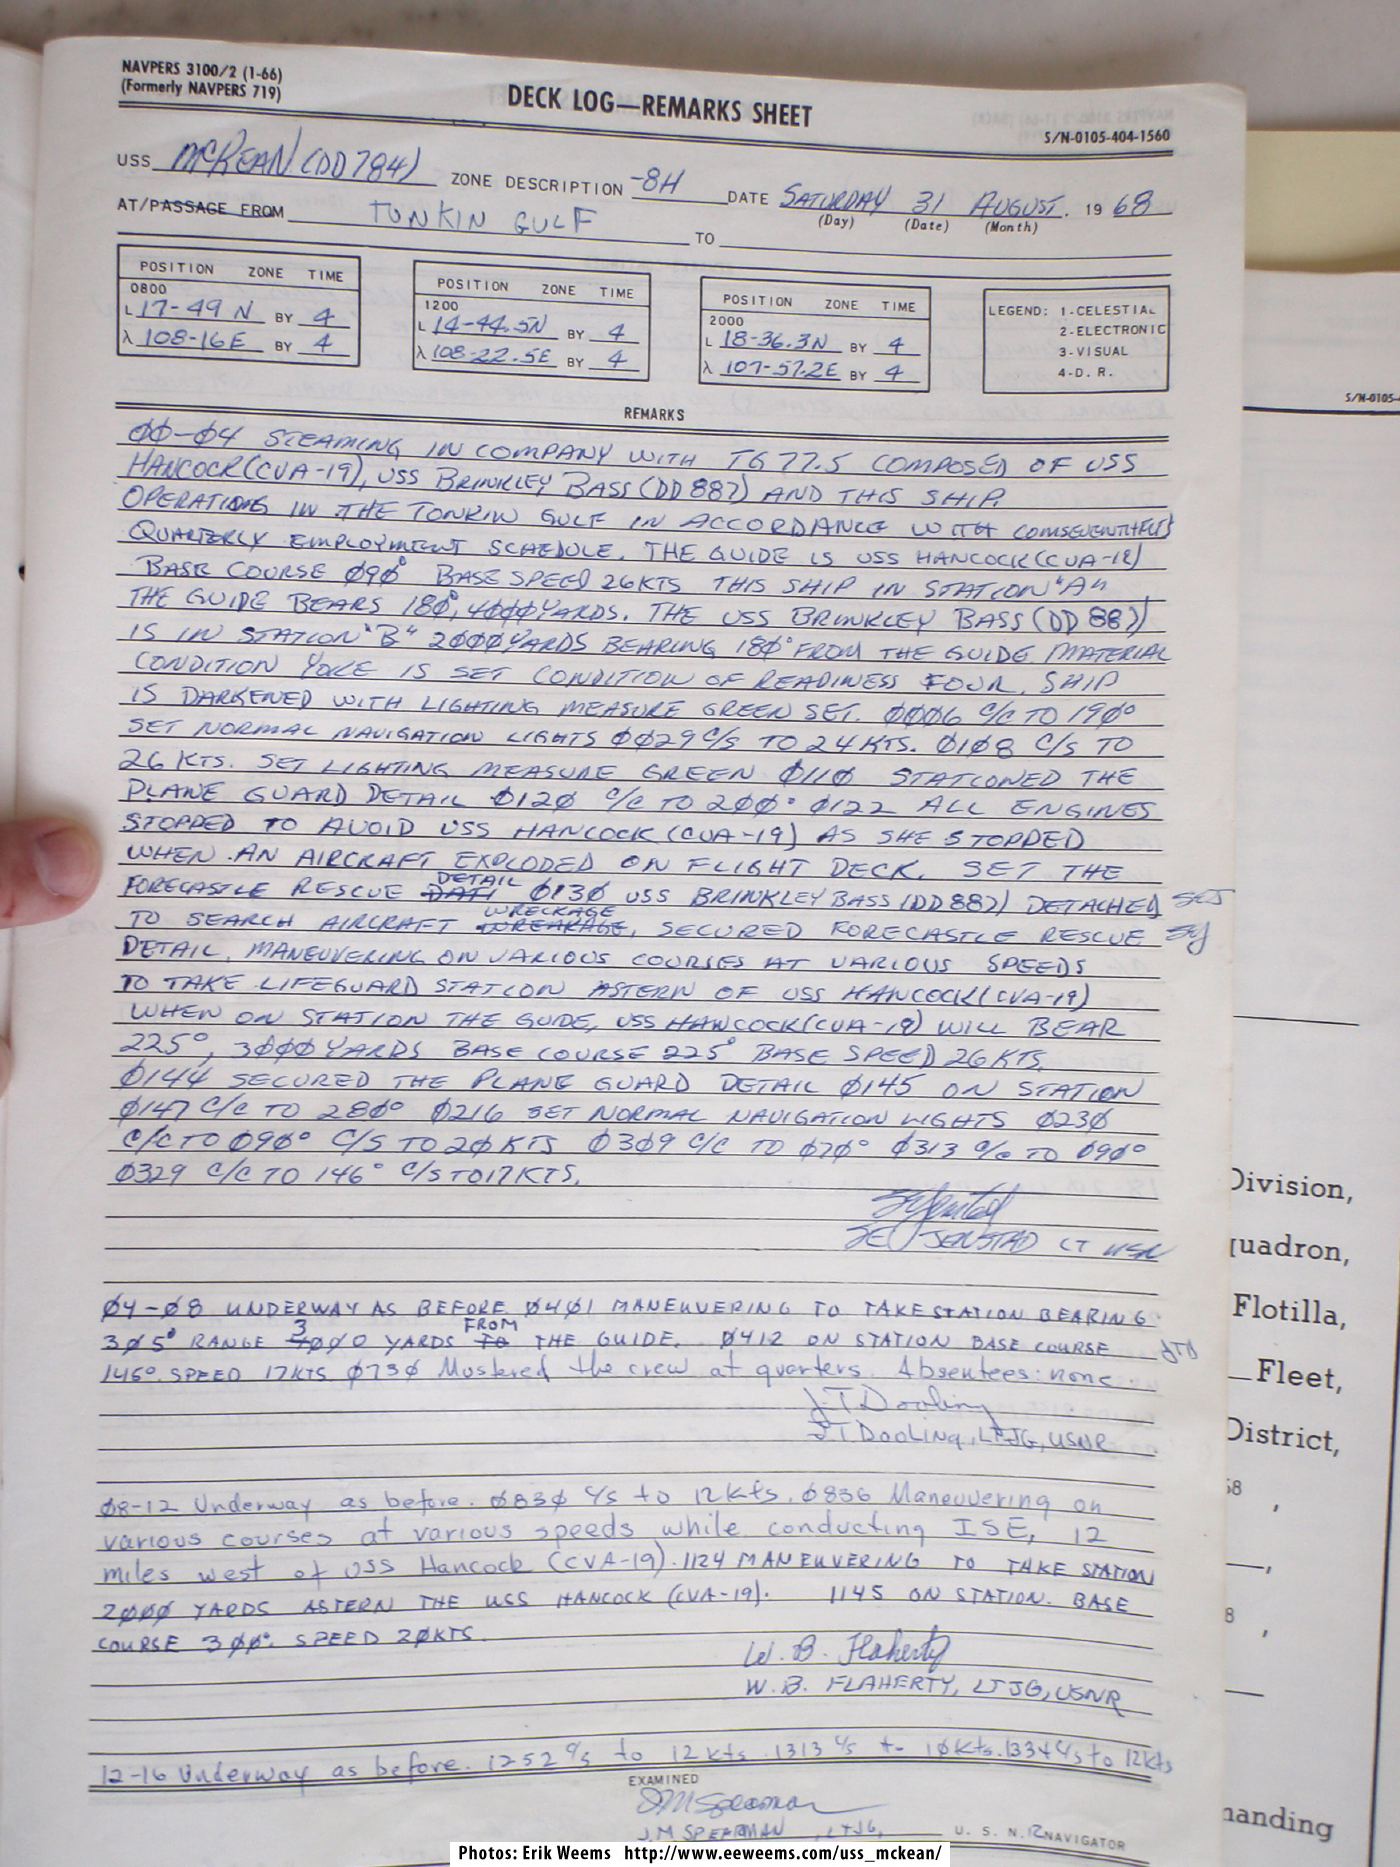 NAVPERS 3100/2 (1-66)
(Formerly NAVPERS 719)
DECK LOG—REMARKS SHEET
S/N-0105-404-1560
USS McKEAN (DD784) ZONE DESCRIPTION -8H DATE SATURDAY 31 AUGUST, 19 68
(Day) (Date) (Month)
AT/PASSAGE FROM TONKIN GULF TO
POSITION ZONE TIME
0800
L 17-49 N BY 4
λ 108-16E BY 4
POSITION ZONE TIME
1200
L 14-44.5N BY 4
λ 108-22.5E BY 4
POSITION ZONE TIME
2000
L 18-36.3N BY 4
λ 107-57.2E BY 4
LEGEND: 1-CELESTIAL
2-ELECTRONIC
3-VISUAL
4-D. R.
REMARKS
00-04 STEAMING IN COMPANY WITH TG 77.5 COMPOSED OF USS
HANCOCK (CVA-19), USS BRINKLEY BASS (DD 887) AND THIS SHIP.
OPERATING IN THE TONKIN GULF IN ACCORDANCE WITH COMSEVENTHFLT
QUARTERLY EMPLOYMENT SCHEDULE. THE GUIDE IS USS HANCOCK (CVA-19)
BASE COURSE 090° BASE SPEED 26KTS THIS SHIP IN STATION "A"
THE GUIDE BEARS 180°, 4000 YARDS. THE USS BRINKLEY BASS (DD 887)
IS IN STATION "B" 2000 YARDS BEARING 180° FROM THE GUIDE MATERIAL
CONDITION YOKE IS SET CONDITION OF READINESS FOUR. SHIP
IS DARKENED WITH LIGHTING MEASURE GREEN SET. 0006 C/C TO 190°
SET NORMAL NAVIGATION LIGHTS 0029 C/S TO 24 KTS. 0108 C/S TO
26 KTS. SET LIGHTING MEASURE GREEN 0110 STATIONED THE
PLANE GUARD DETAIL 0120 C/C TO 200° 0122 ALL ENGINES
STOPPED TO AVOID USS HANCOCK (CVA-19) AS SHE STOPPED
WHEN AN AIRCRAFT EXPLODED ON FLIGHT DECK. SET THE
FORECASTLE RESCUE DETAIL 0130 USS BRINKLEY BASS (DD 887) DETACHED
TO SEARCH AIRCRAFT WRECKAGE, SECURED FORECASTLE RESCUE
DETAIL, MANEUVERING ON VARIOUS COURSES AT VARIOUS SPEEDS
TO TAKE LIFEGUARD STATION ASTERN OF USS HANCOCK (CVA-19)
WHEN ON STATION THE GUIDE, USS HANCOCK (CVA-19) WILL BEAR
225°, 3000 YARDS BASE COURSE 225° BASE SPEED 26 KTS.
0144 SECURED THE PLANE GUARD DETAIL 0145 ON STATION
0147 C/C TO 280° 0216 SET NORMAL NAVIGATION LIGHTS 0230
C/C TO 090° C/S TO 20 KTS 0309 C/C TO 070° 0313 C/C TO 090°
0329 C/C TO 146° C/S TO 17 KTS.
SE JENSTAD LT USN
04-08 UNDERWAY AS BEFORE. 0401 MANEUVERING TO TAKE STATION BEARING
305° RANGE 3000 YARDS FROM THE GUIDE. 0412 ON STATION BASE COURSE JTD
146°. SPEED 17KTS 0730 Mustered the crew at quarters. Absentees: none.
J.T. Dooling
J.T. DOOLING, LTJG, USNR
08-12 Underway as before. 0830 C/S to 12 kts. 0836 Maneuvering on
various courses at various speeds while conducting ISE, 12
miles west of USS Hancock (CVA-19). 1124 MANEUVERING TO TAKE STATION
2000 YARDS ASTERN THE USS HANCOCK (CVA-19). 1145 ON STATION. BASE
COURSE 300°. SPEED 20KTS.
W. B. Flaherty
W. B. FLAHERTY, LTJG, USNR
12-16 Underway as before. 1252 C/S to 12 kts. 1313 C/S to 10 Kts. 1334 C/S to 12 kts
EXAMINED
J M Spearman
J.M SPEARMAN, LTJG, U. S. N.R NAVIGATOR
S/N-0105-
Division,
quadron,
Flotilla,
Fleet,
District,
68 ,
,
8 ,
manding
Photos: Erik Weems http://www.eeweems.com/uss_mckean/